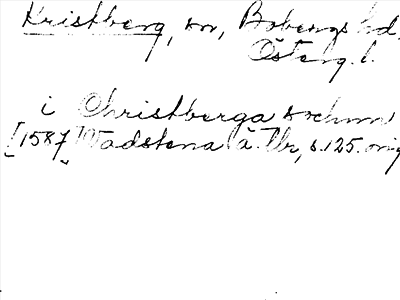 Kristberg, sn, Bobergs hd,
Österg. l.
i Christberga sochnn
[1587] Wadstena ä. Tbr, s. 125. orig